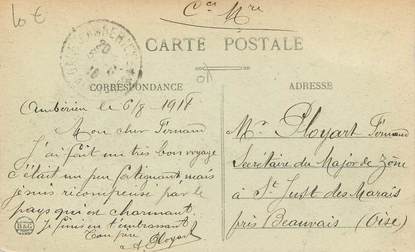 10 €
Cce Mre
CARTE POSTALE
CORRESPONDANCE
ADRESSE
Ambérieu le 6/8 1918
Mon cher Fernand
J'ai fait un très bon voyage
c'était un peu fatiguant mais
je suis récompensé par le
pays qui est charmant
Je finis en t'embrassant
Ton père
A. Ployart
B&G
Mr Ployart Fernand
Secrétaire du Major de Zône
à St Just des Marais
près Beauvais (Oise)